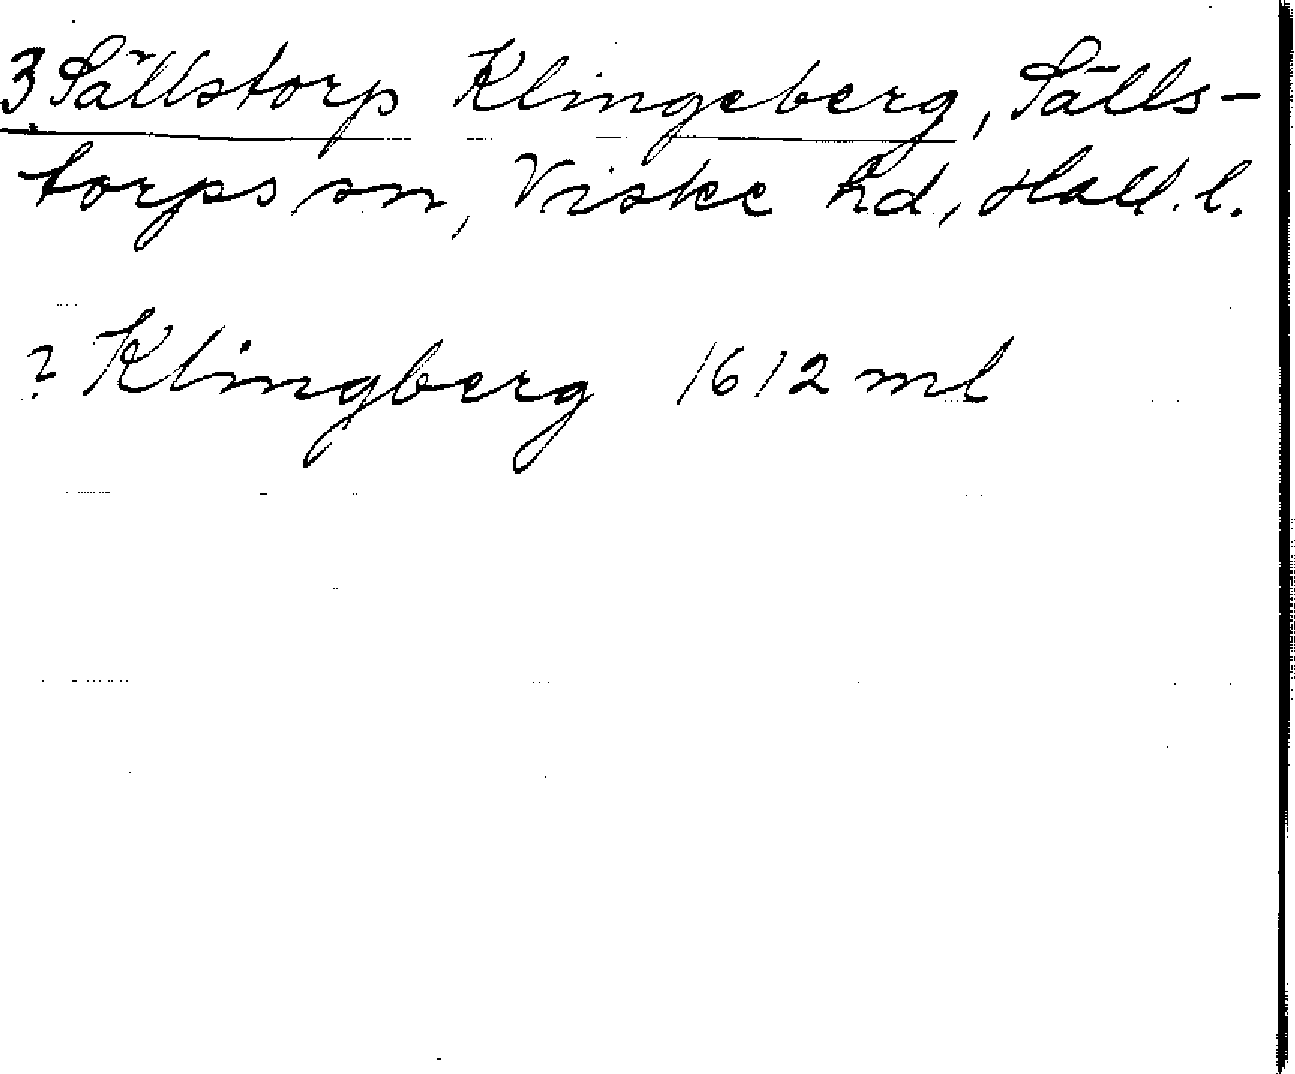 3 Sällstorp Klingeberg, Sälls-
torps sn, Viske hd, Hall. l.
? Klingberg 1612 ml